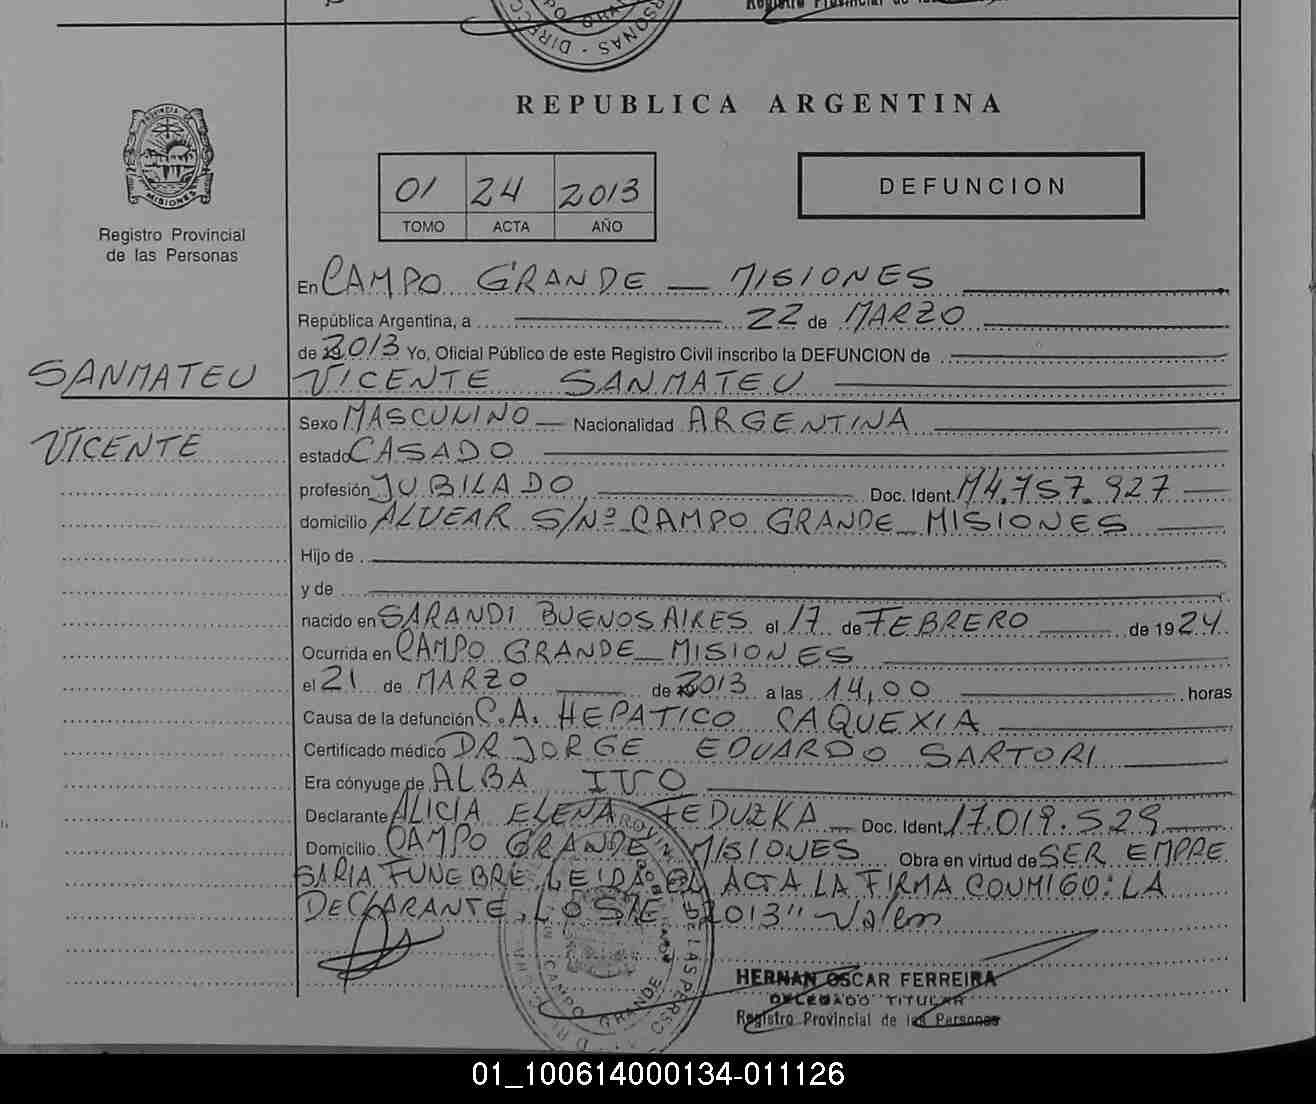 Registro Provincial de las
PERSONAS - DIRECC
CAMPO GRANDE
REPUBLICA ARGENTINA
PROVINCIA DE
MISIONES
Registro Provincial
de las Personas
01 24 2013
TOMO ACTA AÑO
DEFUNCION
En CAMPO GRANDE — MISIONES
República Argentina, a 22 de MARZO
de 2013 Yo, Oficial Público de este Registro Civil inscribo la DEFUNCION de
SANMATEU
VICENTE SANMATEU
Sexo MASCULINO — Nacionalidad ARGENTINA
VICENTE
estado CASADO
profesión JUBILADO Doc. Ident. M4.757.927
domicilio ALVEAR S/Nº CAMPO GRANDE - MISIONES
Hijo de
y de
nacido en SARANDI BUENOS AIRES el 17 de FEBRERO de 1924
Ocurrida en CAMPO GRANDE - MISIONES
el 21 de MARZO de 2013 a las 14,00 horas
Causa de la defunción C.A. HEPATICO CAQUEXIA
Certificado médico DR JORGE EDUARDO SARTORI
Era cónyuge de ALBA IVO
Declarante ALICIA ELENA FEDUZKA — Doc. Ident. 17.019.529
Domicilio CAMPO GRANDE MISIONES Obra en virtud de SER EMPRE
SARIA FUNEBRE, LEIDA EL ACTA LA FIRMA CONMIGO: LA
DECLARANTE, 2013" Valen
CAMPO GRANDE
DE LAS PERSO
HERNAN OSCAR FERREIRA
DELEGADO TITULAR
Registro Provincial de las Personas
01_100614000134-011126